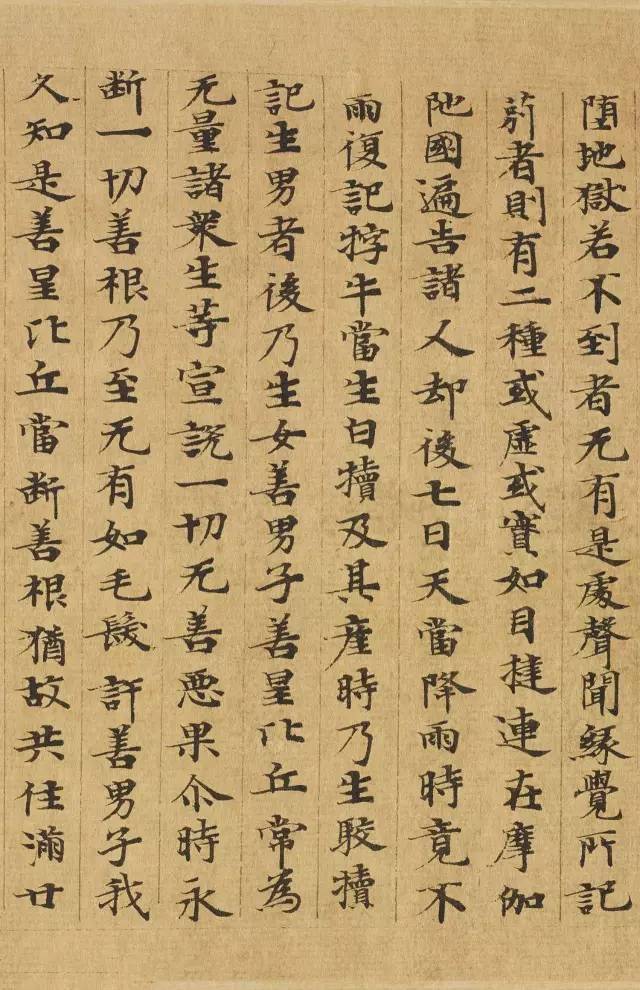 堕地獄若不到者无有是處聲聞緣覺所記
莂者則有二種或虛或實如目揵連在摩伽
陁國遍告諸人却後七日天當降雨時竟不
雨復記牸牛當生白犢及其産時乃生駮犢
記生男者後乃生女善男子善星比丘常為
无量諸衆生等宣説一切无善悪果尒時永
断一切善根乃至无有如毛髮許善男子我
久知是善星比丘當断善根猶故共住滿廿